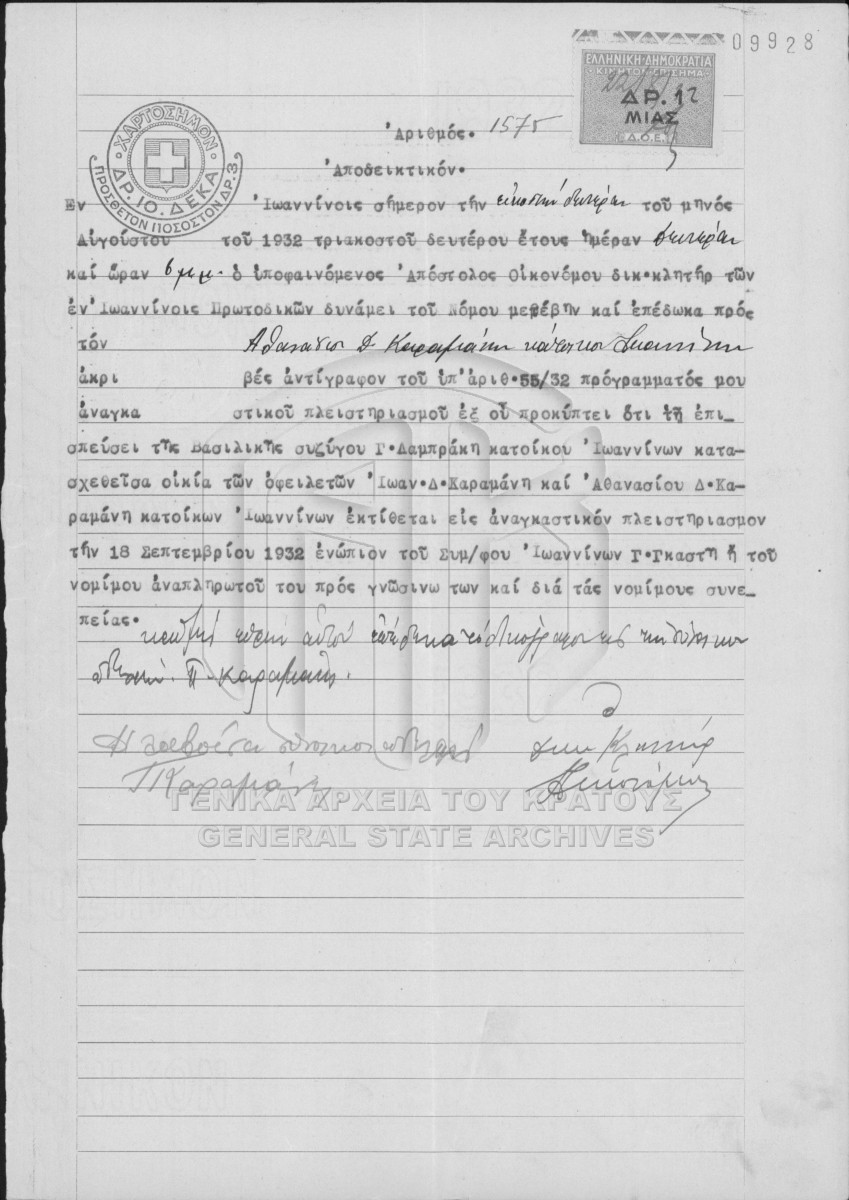 09928
ΕΛΛΗΝΙΚΗ ΔΗΜΟΚΡΑΤΙΑ
ΚΙΝΗΤΟΝ ΕΠΙΣΗΜΑ
22/8/
ΔΡ. 1
ΜΙΑΣ
Δ.Ο.Ε.
ΧΑΡΤΟΣΗΜΟΝ
ΔΡ. ΙΟ. ΔΕΚΑ
ΠΡΟΣΘΕΤΟΝ ΠΟΣΟΣΤΟΝ ΔΡ. 3
Ἀριθμός. 1575
Ἀποδεικτικόν.
Εν Ἰωαννίνοις σήμερον τήν εἰκοστήν δευτέραν τοῦ μηνός
Αὐγούστου τοῦ 1932 τριακοστοῦ δευτέρου ἔτους ἡμέραν Δευτέραν
καί ὥραν 6 μ.μ. ὁ ὑποφαινόμενος Ἀπόστολος Οἰκονόμου δικ.κλητήρ τῶν
ἐν Ἰωαννίνοις Πρωτοδικῶν δυνάμει τοῦ Νόμου μετέβην καί ἐπέδωκα πρός
τόν Αθανάσιον Δ Καραμάνην κάτοικον Ιωαννίνων
ἀκρι βές ἀντίγραφον τοῦ ὑπ' ἀριθ.55/32 πρόγραμματός μου
ἀναγκα στικοῦ πλειστηριασμοῦ ἐξ οὗ προκύπτει ὅτι τῇ ἐπι_
σπεύσει τῆς Βασιλικῆς συζύγου Γ.Δαμπράκη κατοίκου Ἰωαννίνων κατα_
σχεθεῖσα οἰκία τῶν ὀφειλετῶν Ἰωαν.Δ.Καραμάνη καί Ἀθανασίου Δ.Κα_
ραμάνη κατοίκων Ἰωαννίνων ἐκτίθεται εἰς ἀναγκαστικόν πλειστηριασμον
τήν 18 Σεπτεμβρίου 1932 ἐνώπιον τοῦ Συμ/φου Ἰωαννίνων Γ.Γκαστη ἤ τοῦ
νομίμου ἀναπληρωτοῦ του πρός γνῶσινω των καί διά τάς νομίμους συνε_
πείας.
αὐτοῦ
Π. Καραμάνη.
Η λαβοῦσα σύνοικος
Π Καραμάνη
Ο
Δικ Κλητήρ
ΑΟικονόμου
ΓΕΝΙΚΑ ΑΡΧΕΙΑ ΤΟΥ ΚΡΑΤΟΥΣ
GENERAL STATE ARCHIVES